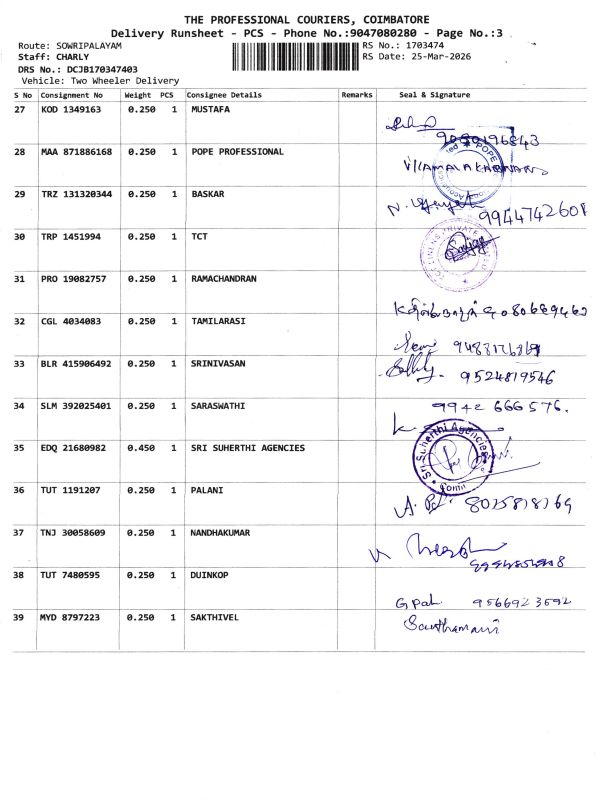 THE PROFESSIONAL COURIERS, COIMBATORE
Delivery Runsheet - PCS - Phone No.:9047080280 - Page No.:3
Route: SOWRIPALAYAM RS No.: 1703474
Staff: CHARLY RS Date: 25-Mar-2026
DRS No.: DCJB170347403
Vehicle: Two Wheeler Delivery
S No Consignment No Weight PCS Consignee Details Remarks Seal & Signature
27 KOD 1349163 0.250 1 MUSTAFA
28 MAA 871886168 0.250 1 POPE PROFESSIONAL
29 TRZ 131320344 0.250 1 BASKAR
9944742608
30 TRP 1451994 0.250 1 TCT
31 PRO 19082757 0.250 1 RAMACHANDRAN
32 CGL 4034083 0.250 1 TAMILARASI
33 BLR 415906492 0.250 1 SRINIVASAN
9524819546
34 SLM 392025401 0.250 1 SARASWATHI
9942 666 576.
35 EDQ 21680982 0.450 1 SRI SUHERTHI AGENCIES
Sri Suherthi Agencies
36 TUT 1191207 0.250 1 PALANI
37 TNJ 30058609 0.250 1 NANDHAKUMAR
38 TUT 7480595 0.250 1 DUINKOP
Gpal 9566923592
39 MYD 8797223 0.250 1 SAKTHIVEL
Santhamani